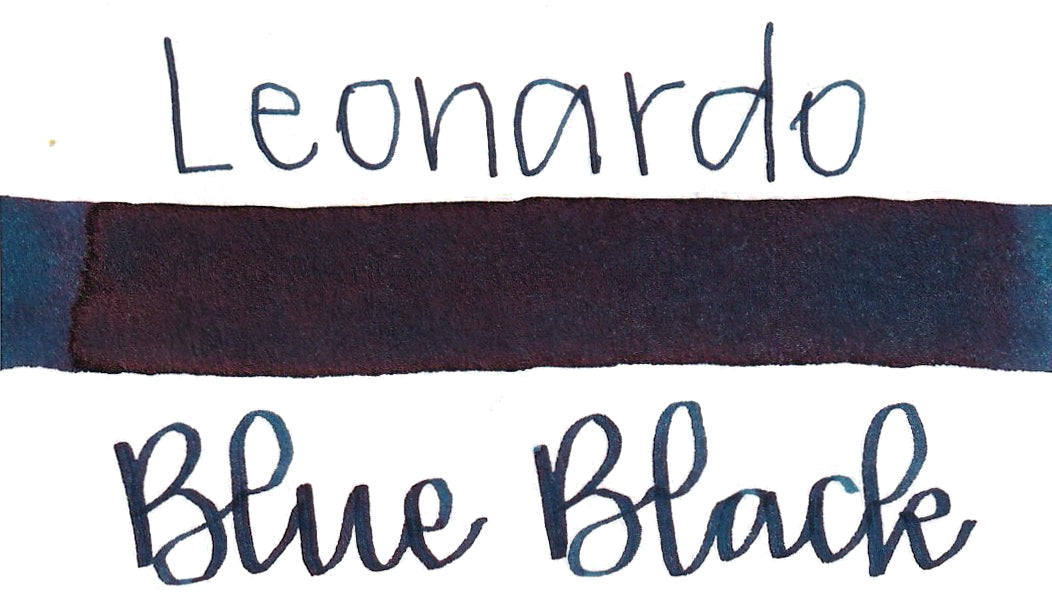 Leonardo
Blue Black